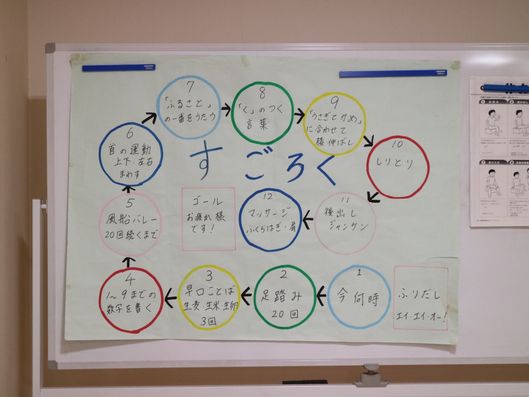 すごろく
ふりだし
エイ・エイ・オー!
1
今何時
2
足踏み
20回
3
早口ことば
生麦・生米・生卵
3回
4
1〜9までの
数字を書く
5
風船バレー
20回続くまで
6
首の運動
上下・左右
まわす
7
「ふるさと」
の一番をうたう
8
「く」のつく
言葉
9
「うさぎとかめ」
に合わせて
膝伸ばし
10
しりとり
11
後出し
ジャンケン
12
マッサージ
ふくらはぎ・肩
ゴール
お疲れ様
です!